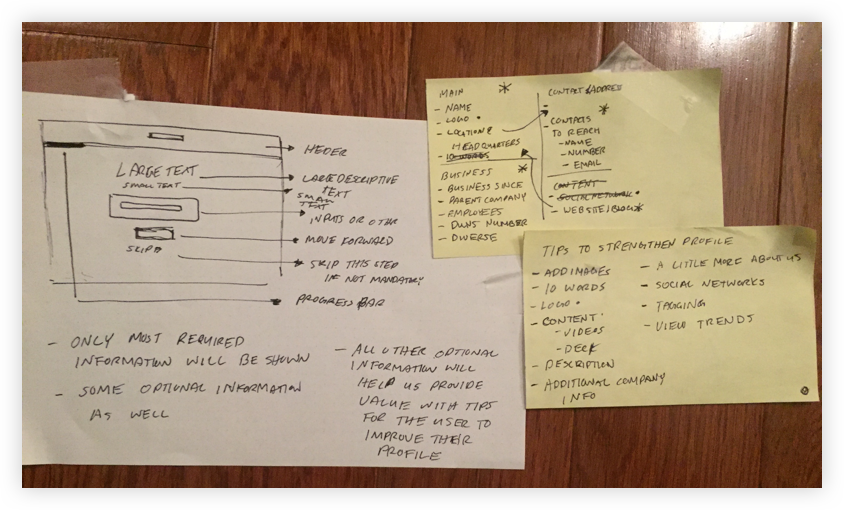 LARGE TEXT
SMALL TEXT
SKIP
HEDER
LARGE DESCRIPTIVE
TEXT
SMALL
TEXT
INPUTS OR OTHR
MOVE FORWARD
SKIP THIS STEP
IF NOT MANDATORY
PROGRESS BAR
- ONLY MOST REQUIRED
INFORMATION WILL BE SHOWN
- SOME OPTIONAL INFORMATION
AS WELL
- ALL OTHER OPTIONAL
INFORMATION WILL
HELP US PROVIDE
VALUE WITH TIPS
FOR THE USER TO
IMPROVE THEIR
PROFILE
MAIN *
- NAME
- LOGO •
- LOCATION &
HEADQUARTERS
- 10 WORDS
BUSINESS *
- BUSINESS SINCE
- PARENT COMPANY
- EMPLOYEES
- DUNS NUMBER
- DIVERSE
CONTACT & ADDRESS
-
*
- CONTACTS
TO REACH
- NAME
- NUMBER
- EMAIL
CONTENT
- SOCIAL NETWORK •
- WEBSITE/BLOG *
TIPS TO STRENGTHEN PROFILE
- ADD IMAGES
- 10 WORDS
- LOGO •
- CONTENT
- VIDEOS
- DECK
- DESCRIPTION
- ADDITIONAL COMPANY
INFO
- A LITTLE MORE ABOUT US
- SOCIAL NETWORKS
- TAGGING
- VIEW TRENDS